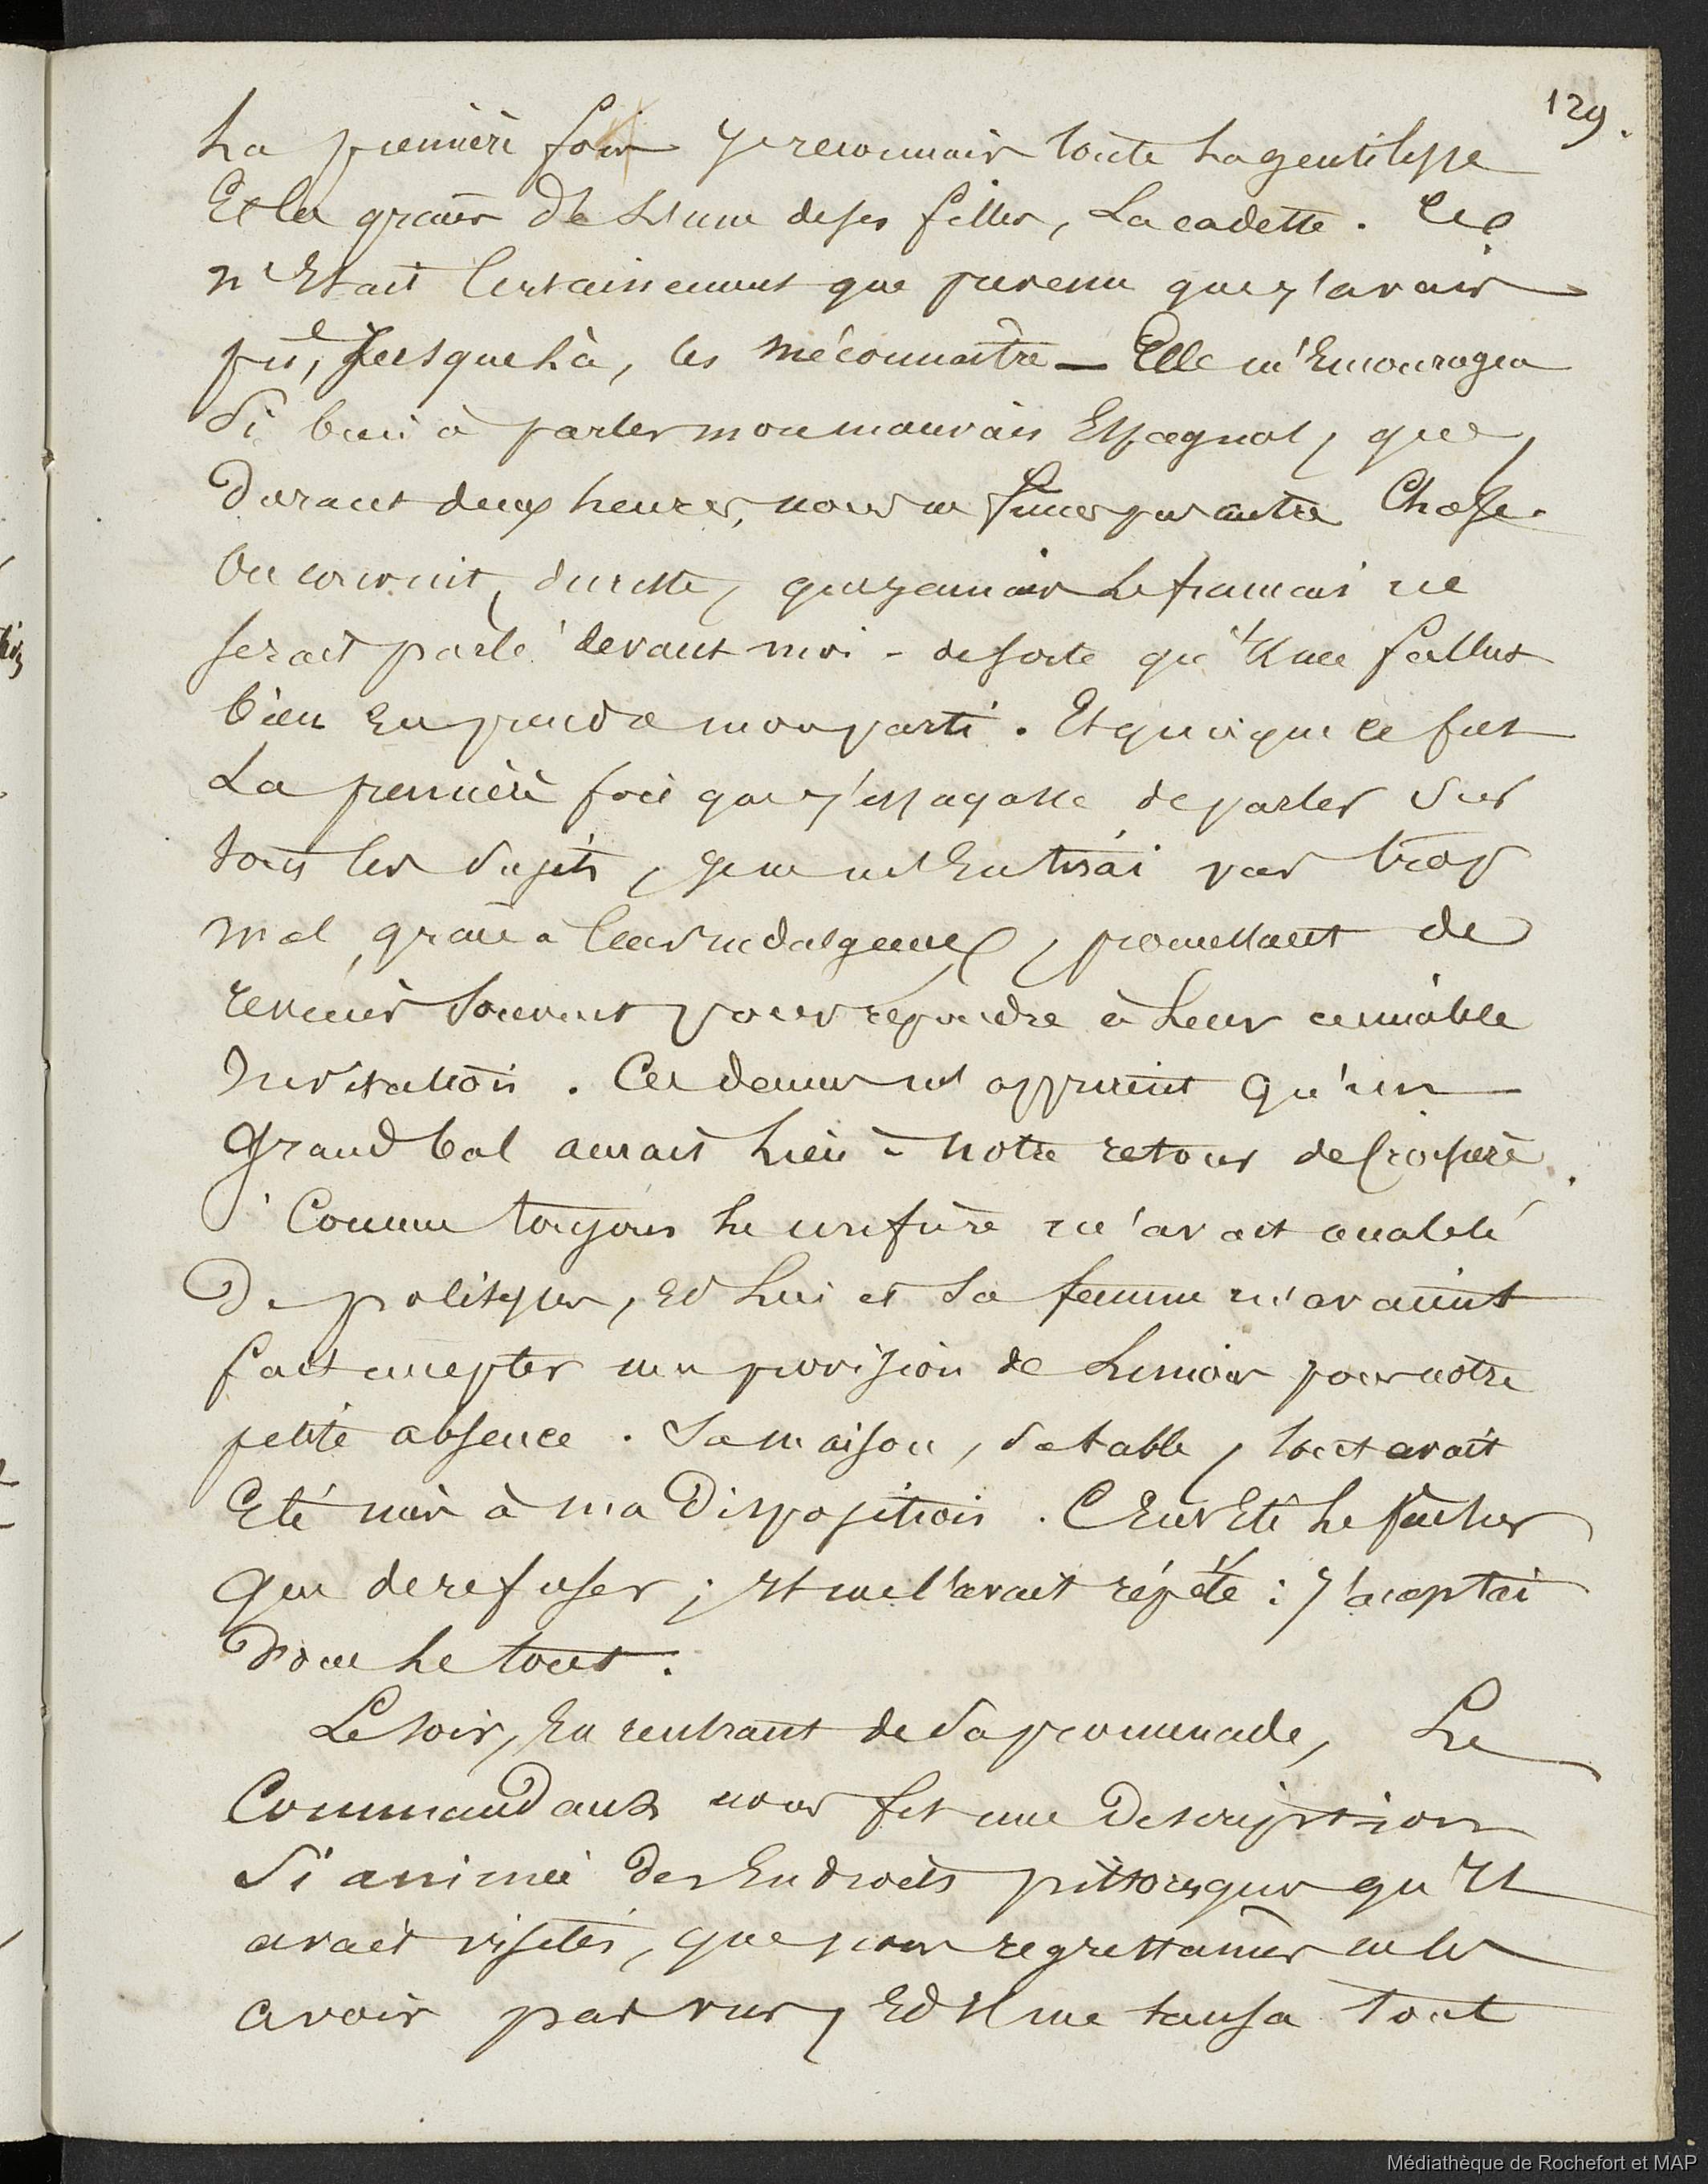 129.
La première fois je reconnais toute la gentilesse
Et la grâce de l'une de ses filles, La cadette. Ce
n'Etait Certainement que prévenu que j'avais
pû, Jusque là, les méconnaître — Elle m'Encouragea
Si bien à parler mon mauvais Espagnol, que,
Durant deux heures, nous ne fîmes pas autre Chose.
On convint, du reste, que jamais Le français ne
serait parlé devant moi - de sorte qu'il me fallut
bien En prendre mon parti. Et quoique ce fut
La première fois que j'essayasse de parler Sur
tous les Sujets, je ne m'En tirai pas trop
mal, grâce à leur indulgence, promettant de
revenir Souvent pour répondre à Leur aimable
Invitation. Ces dames m'apprirent qu'un
grand bal aurait Lieu à notre retour de Croisière.
Comme toujours Le confrère m'avait accablé
De politesses, Ed Lui et Sa femme m'avaient
fait accepter une provision de Limons pour notre
petite absence. Sa maison, sa table, tout avait
Eté mis à ma Disposition. C'Eut Eté Le fâcher
que de refuser ; Il me l'avait répété : J'acceptai
Donc Le tout.
Le soir, En rentrant de Sa promenade, Le
Commandant nous fit une Description
Si animée Des Endroits pittoresques qu'Il
avait visités, que nous regrettâmes ne les
avoir pas vus, Ed Il me tansa tout
Médiathèque de Rochefort et MAP